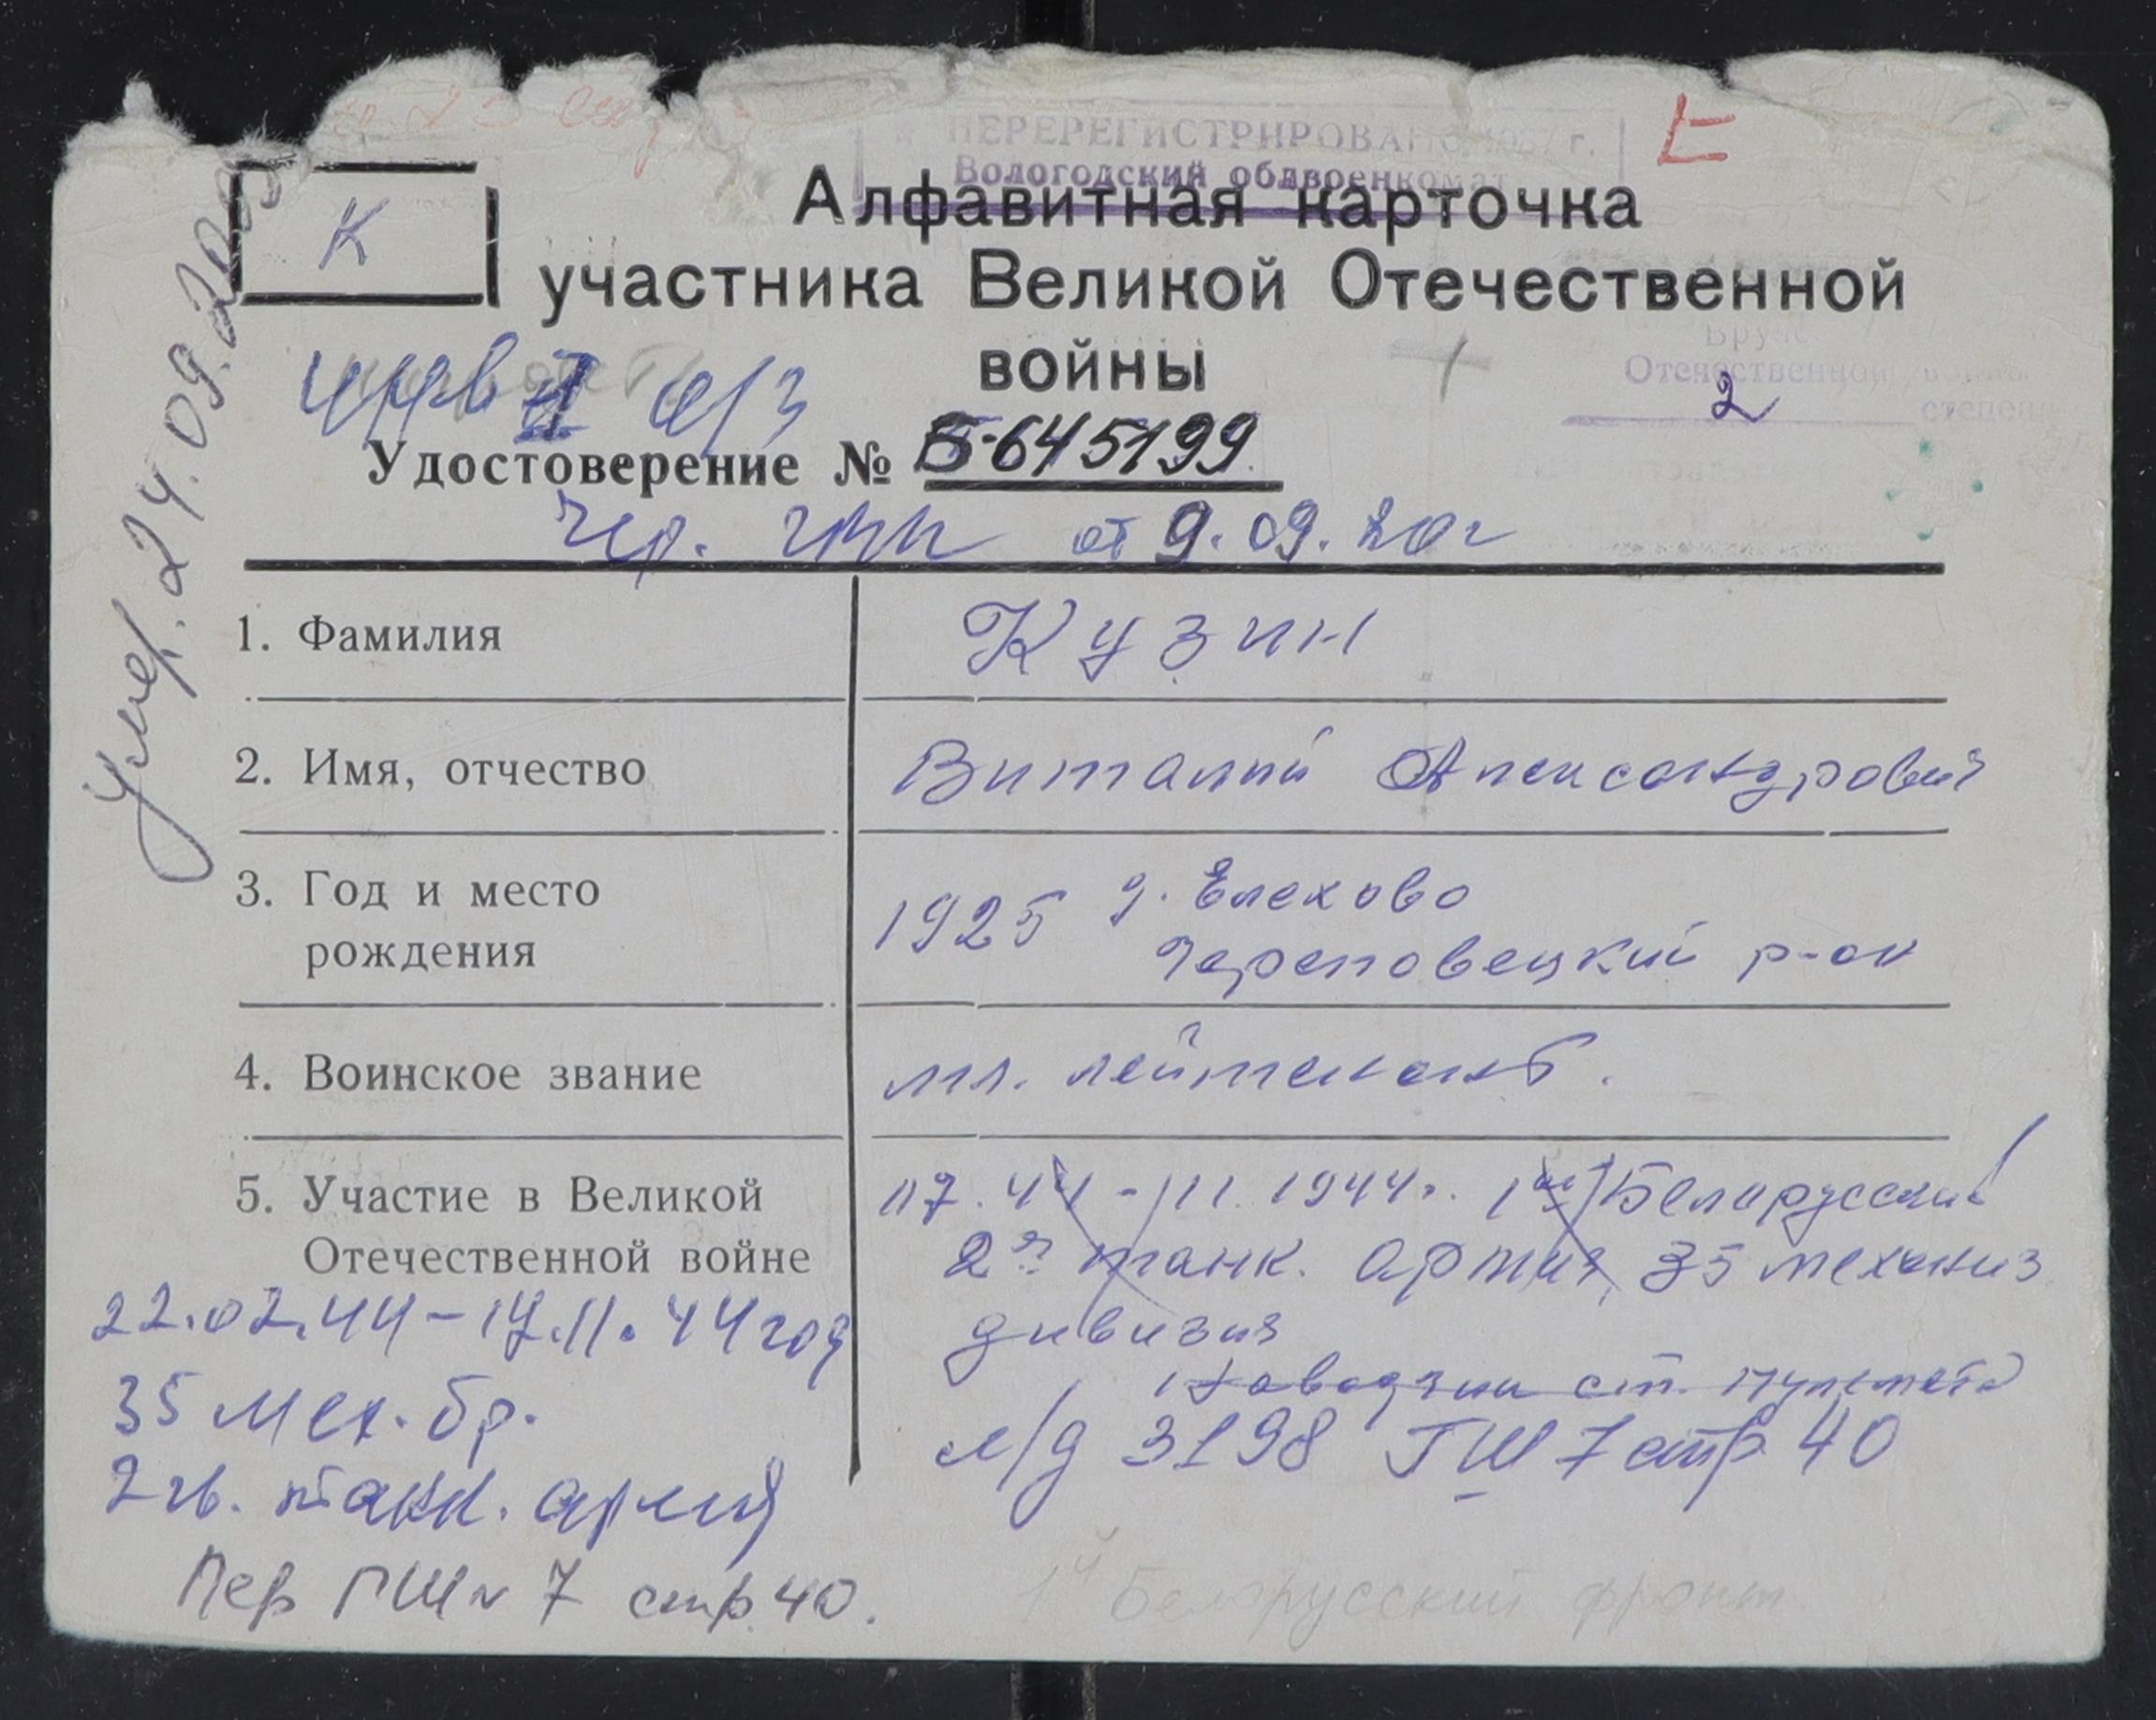 ПЕРЕРЕГИСТРИРОВАНО
Вологодский облвоенкомат
К
Алфавитная карточка
участника Великой Отечественной
войны
Отечественной
2
степени
ИИВ II о/з
Удостоверение № Б-645199
Чер. от 9.09.20г
Умер. 24.09.
1. Фамилия Кузин
2. Имя, отчество Виталий Александрович
3. Год и место рождения 1925 д. Елехово
Череповецкий р-он
4. Воинское звание мл. лейтенант.
5. Участие в Великой Отечественной войне
07.44 - 11.1944г. 1й Белорусский
2я танк. армия, 35 механиз
дивизия
наводчик ст. пулемета
л/д 3198 ГШ 7 стр 40
22.02.44 - 17.11.44 год
35 мех. бр.
2 гв. танк. армия
Пер ГШ № 7 стр. 40.
1й Белорусский фронт